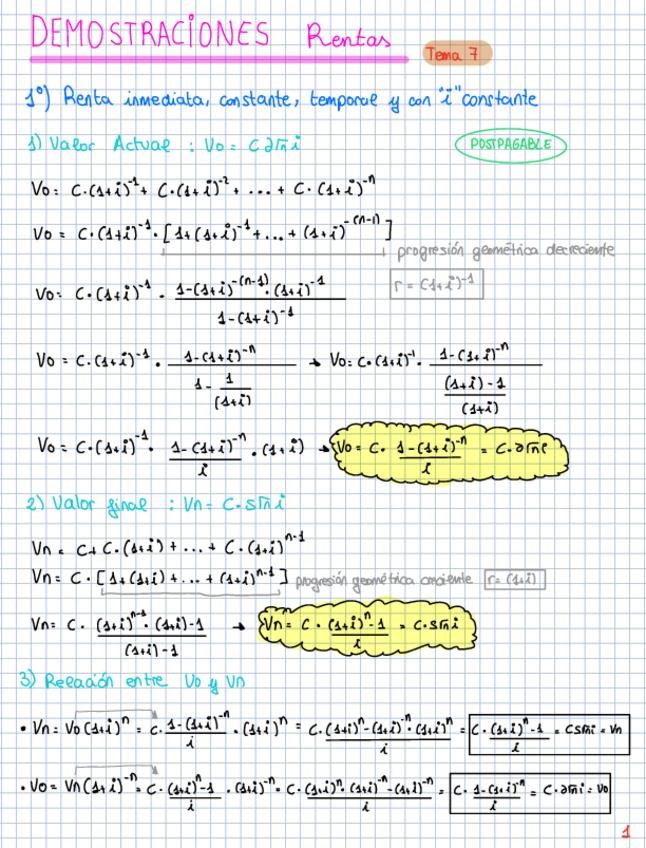 DEMOSTRACIONES Rentas
Tema 7
1º) Renta inmediata, constante, temporal y con "i" constante
1) Valor Actual : Vo = C a n̅ i
POSTPAGABLE
Vo = C·(1+i)⁻¹ + C·(1+i)⁻² + ... + C·(1+i)⁻ⁿ
Vo = C·(1+i)⁻¹ · [1+(1+i)⁻¹ + ... + (1+i)⁻⁽ⁿ⁻¹⁾]
progresión geométrica decreciente
Vo = C·(1+i)⁻¹ · (1-(1+i)⁻⁽ⁿ⁻¹⁾·(1+i)⁻¹) / (1-(1+i)⁻¹)
r = (1+i)⁻¹
Vo = C·(1+i)⁻¹ · (1-(1+i)⁻ⁿ) / (1 - 1/(1+i)) → Vo = C·(1+i)⁻¹ · (1-(1+i)⁻ⁿ) / (((1+i)-1)/(1+i))
Vo = C·(1+i)⁻¹ · (1-(1+i)⁻ⁿ)/i · (1+i) → Vo = C· (1-(1+i)⁻ⁿ)/i = C·a n̅ i
2) Valor final : Vn = C·s n̅ i
Vn = C + C·(1+i) + ... + C·(1+i)ⁿ⁻¹
Vn = C·[1+(1+i) + ... + (1+i)ⁿ⁻¹] progresión geométrica creciente r = (1+i)
Vn = C · ((1+i)ⁿ⁻¹·(1+i)-1) / ((1+i)-1) → Vn = C · ((1+i)ⁿ-1)/i = C·s n̅ i
3) Relación entre Vo y Vn
• Vn = Vo(1+i)ⁿ = C· (1-(1+i)⁻ⁿ)/i · (1+i)ⁿ = C· ((1+i)ⁿ-(1+i)⁻ⁿ·(1+i)ⁿ)/i = C· ((1+i)ⁿ-1)/i = C s n̅ i = Vn
• Vo = Vn(1+i)⁻ⁿ = C· ((1+i)ⁿ-1)/i · (1+i)⁻ⁿ = C· ((1+i)ⁿ·(1+i)⁻ⁿ-(1+i)⁻ⁿ)/i = C· (1-(1+i)⁻ⁿ)/i = C·a n̅ i = Vo
1